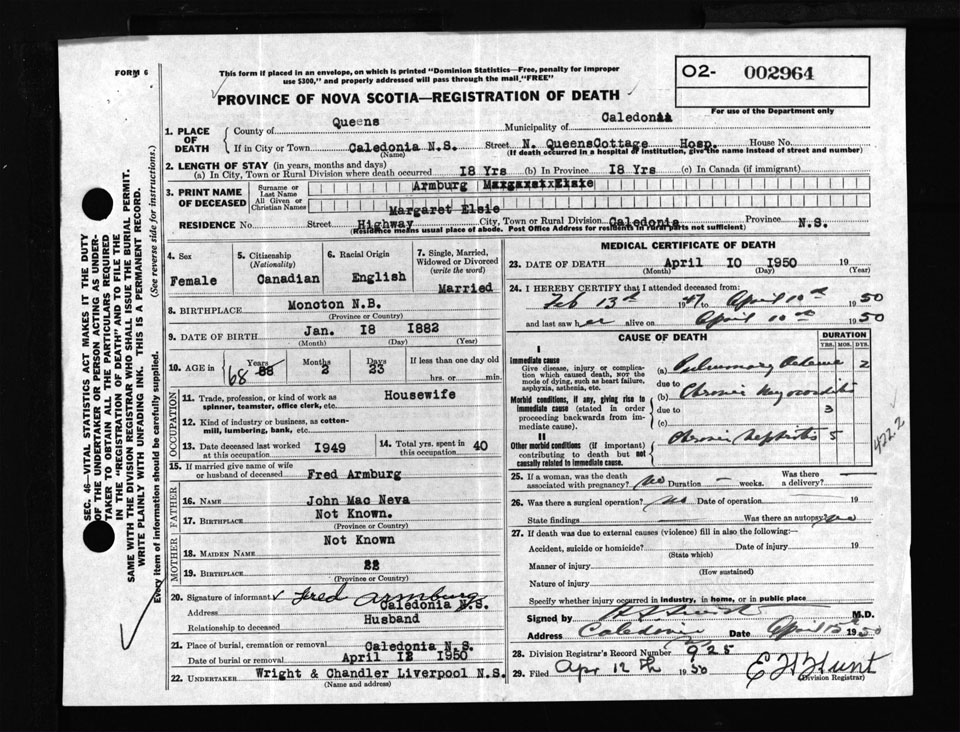 FORM 6
This form if placed in an envelope, on which is printed "Dominion Statistics—Free, penalty for improper
use $300," and properly addressed will pass through the mail "FREE"
O2- 002964
For use of the Department only
PROVINCE OF NOVA SCOTIA—REGISTRATION OF DEATH
SEC. 46—VITAL STATISTICS ACT MAKES IT THE DUTY
OF THE UNDERTAKER OR PERSON ACTING AS UNDER-
TAKER TO OBTAIN ALL THE PARTICULARS REQUIRED
IN THE "REGISTRATION OF DEATH" AND TO FILE THE
SAME WITH THE DIVISION REGISTRAR WHO SHALL ISSUE THE BURIAL PERMIT.
WRITE PLAINLY WITH UNFADING INK. THIS IS A PERMANENT RECORD.
Every item of information should be carefully supplied. (See reverse side for instructions.)
1. PLACE OF DEATH
County of Queens Municipality of Caledonia
If in City or Town Caledonia N.S. Street N. QueensCottage Hosp. House No.
(Name) (If death occurred in a hospital or institution, give the name instead of street and number)
2. LENGTH OF STAY (in years, months and days)
(a) In City, Town or Rural Division where death occurred 18 Yrs (b) In Province 18 Yrs (c) In Canada (if immigrant)
3. PRINT NAME OF DECEASED
Surname or Last Name Armburg MargaretxElsie
All Given or Christian Names Margaret Elsie
RESIDENCE No. Street Highway City, Town or Rural Division Caledonia Province N.S.
(Residence means usual place of abode. Post Office Address for residents in rural parts not sufficient)
4. Sex Female
5. Citizenship (Nationality) Canadian
6. Racial Origin English
7. Single, Married, Widowed or Divorced (write the word) Married
8. BIRTHPLACE Monoton N.B.
(Province or Country)
9. DATE OF BIRTH Jan. 18 1882
(Month) (Day) (Year)
10. AGE in Years 68 Months 2 Days 23 If less than one day old hrs. or min.
OCCUPATION
11. Trade, profession, or kind of work as spinner, teamster, office clerk, etc. Housewife
12. Kind of industry or business, as cotton-mill, lumbering, bank, etc.
13. Date deceased last worked at this occupation 1949
14. Total yrs. spent in this occupation 40
15. If married give name of wife or husband of deceased Fred Armburg
FATHER
16. NAME John Mac Neva
17. BIRTHPLACE Not Known.
(Province or Country)
MOTHER
18. MAIDEN NAME Not Known
19. BIRTHPLACE
(Province or Country)
20. Signature of informant Fred Armburg
Address Caledonia N.S.
Relationship to deceased Husband
21. Place of burial, cremation or removal Caledonia N.S.
Date of burial or removal April 12 1950
22. UNDERTAKER Wright & Chandler Liverpool N.S.
(Name and address)
MEDICAL CERTIFICATE OF DEATH
23. DATE OF DEATH April 10 1950 19
(Month) (Day) (Year)
24. I HEREBY CERTIFY that I attended deceased from:
Feb 13th 1947 to April 10th 1950
and last saw her alive on April 10th 1950
CAUSE OF DEATH DURATION
YRS. MOS. DYS.
I
Immediate cause
Give disease, injury or complication which caused death, not the mode of dying, such as heart failure, asphyxia, asthenia, etc.
(a) Pulmonary Oedema 2
due to
Morbid conditions, if any, giving rise to immediate cause (stated in order proceeding backwards from immediate cause).
(b) Chronic Myocarditis
due to 3
(c)
II
Other morbid conditions (if important) contributing to death but not causally related to immediate cause.
Chronic Nephritis 5
4222
25. If a woman, was the death associated with pregnancy? No Duration — weeks. Was there a delivery? —
26. Was there a surgical operation? No Date of operation 19
State findings Was there an autopsy? no
27. If death was due to external causes (violence) fill in also the following:—
Accident, suicide or homicide? Date of injury 19
(State which)
Manner of injury
(How sustained)
Nature of injury
Specify whether injury occurred in industry, in home, or in public place
Signed by M.D.
Address Caledonia Date April 15th 1950
28. Division Registrar's Record Number 925
29. Filed Apr 12th 1950 E H Hunt
(Division Registrar)